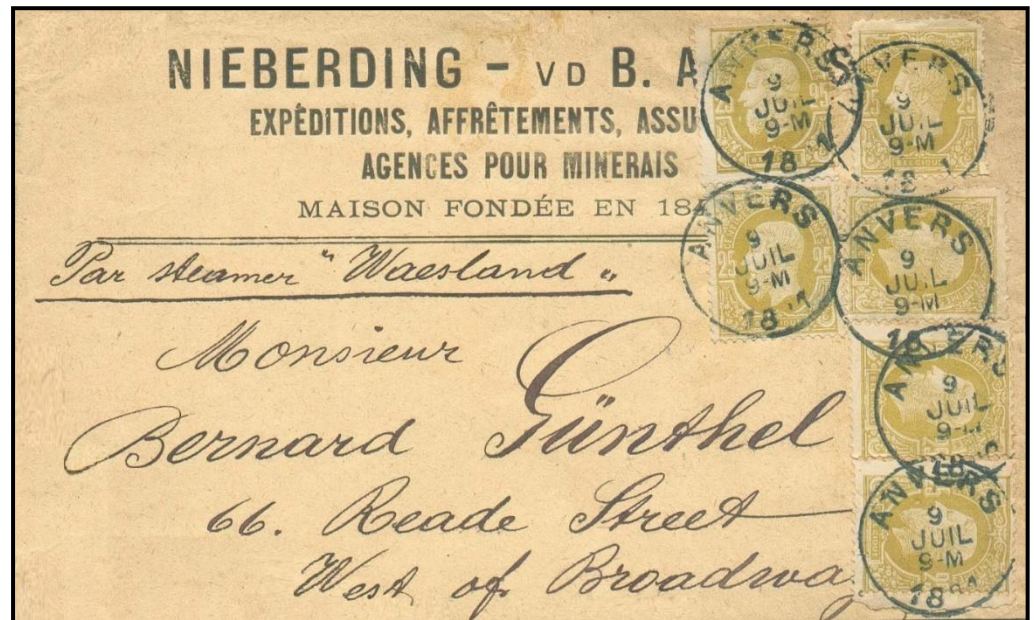 NIEBERDING - VD B. A
EXPÉDITIONS, AFFRÊTEMENTS, ASSU
AGENCES POUR MINERAIS
MAISON FONDÉE EN 18
Par steamer "Waesland"
Monsieur
Bernard Günthel
66. Reade Street
West of Broadwa
ANVERS
9
JUIL
9-M
18
ANVERS
9
JUIL
9-M
18
ANVERS
9
JUIL
9-M
18
25
25
ANVERS
9
JUIL
9-M
18
ANVERS
9
JUIL
9-M
18
ANVERS
9
JUIL
9-M
18